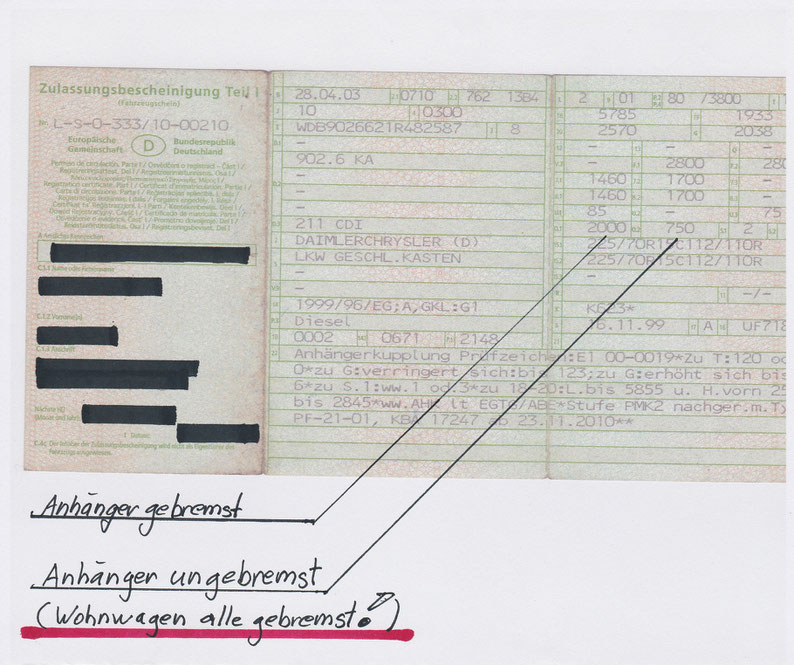 Zulassungsbescheinigung Teil I
(Fahrzeugschein)
Nr. L-S-0-333/10-00210
Europäische Gemeinschaft
D
Bundesrepublik Deutschland
C.1.2 Vorname(n)
C.1.3 Anschrift
28.04.03 0710 762 1384
10 0300
WDB9026621R482587 8
–
902.6 KA
–
–
211 CDI
DAIMLERCHRYSLER (D)
LKW GESCHL.KASTEN
–
–
1999/96/EG;A,GKL:G1
Diesel
0002 0671 2148
2 01 80 /3800
5785 1933
2570 2038
– – –
– 2800 280
1460 1700 –
1460 1700 –
85 – 75
2000 750 2
225/70R15C112/110R
225/70R15C112/110R
–
–/–
16.11.99 A UF718
Anhängerkupplung Prüfzeichen:E1 00-0019*Zu T:120 od
0*zu G:verringert sich:bis 123;zu G:erhöht sich bis
6*zu S.1:ww.1 od.3*zu 18-20:L.bis 5855 u. H.vorn 25
bis 2845*ww.AHK lt EGTG/ABE*Stufe PMK2 nachger.m.Ty
PF-21-01, KBA 17247 ab 23.11.2010**
Anhänger gebremst
Anhänger ungebremst
(Wohnwagen alle gebremst!)